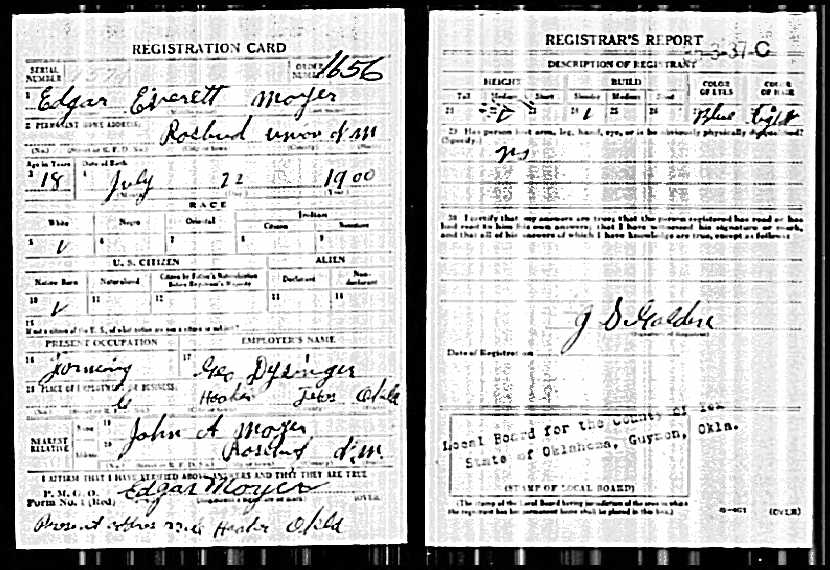 REGISTRATION CARD
SERIAL NUMBER
ORDER NUMBER 1656
1 Edgar Everett Moyer
2 PERMANENT HOME ADDRESS
Rosebud Union N.M
Age in Years Date of Birth
3 18 4 July 22 1900
RACE
White Negro Oriental Indian
Citizen Noncitizen
5 ✓ 6 7 8 9
U. S. CITIZEN ALIEN
Native Born Naturalized Citizen by Father's Naturalization Before Registrant's Majority Declarant Non-declarant
10 ✓ 11 12 13 14
15 If not a citizen of the U. S., of what nation are you a citizen or subject?
PRESENT OCCUPATION EMPLOYER'S NAME
16 17 Geo Dysinger
18 PLACE OF EMPLOYMENT OR BUSINESS
Hooker Texas Okla
NEAREST RELATIVE
Name 19 John A Moyer
Address 20 Rosebud N.M.
I AFFIRM THAT I HAVE VERIFIED ABOVE ANSWERS AND THAT THEY ARE TRUE
P. M. G. O.
Form No. 1 (Red) Edgar Moyer (OVER)
Present address Hooker Okla
REGISTRAR'S REPORT
3-37-C
DESCRIPTION OF REGISTRANT
HEIGHT BUILD COLOR OF EYES COLOR OF HAIR
Tall Medium Short Slender Medium Stout
21 22 ✓ 23 24 ✓ 25 26 Blue Light
29 Has person lost arm, leg, hand, eye, or is he obviously physically disqualified?
(Specify.)
no
30 I certify that my answers are true; that the person registered has read or has
had read to him his own answers; that I have witnessed his signature or mark,
and that all of his answers of which I have knowledge are true, except as follows:
(Signature of Registrar)
Date of Registration
Local Board for the County of Tex
State of Oklahoma, Guymon, Okla.
(STAMP OF LOCAL BOARD)
(The stamp of the Local Board having jurisdiction of the area in which
the registrant has his permanent home shall be placed in this box.)
(OVER)